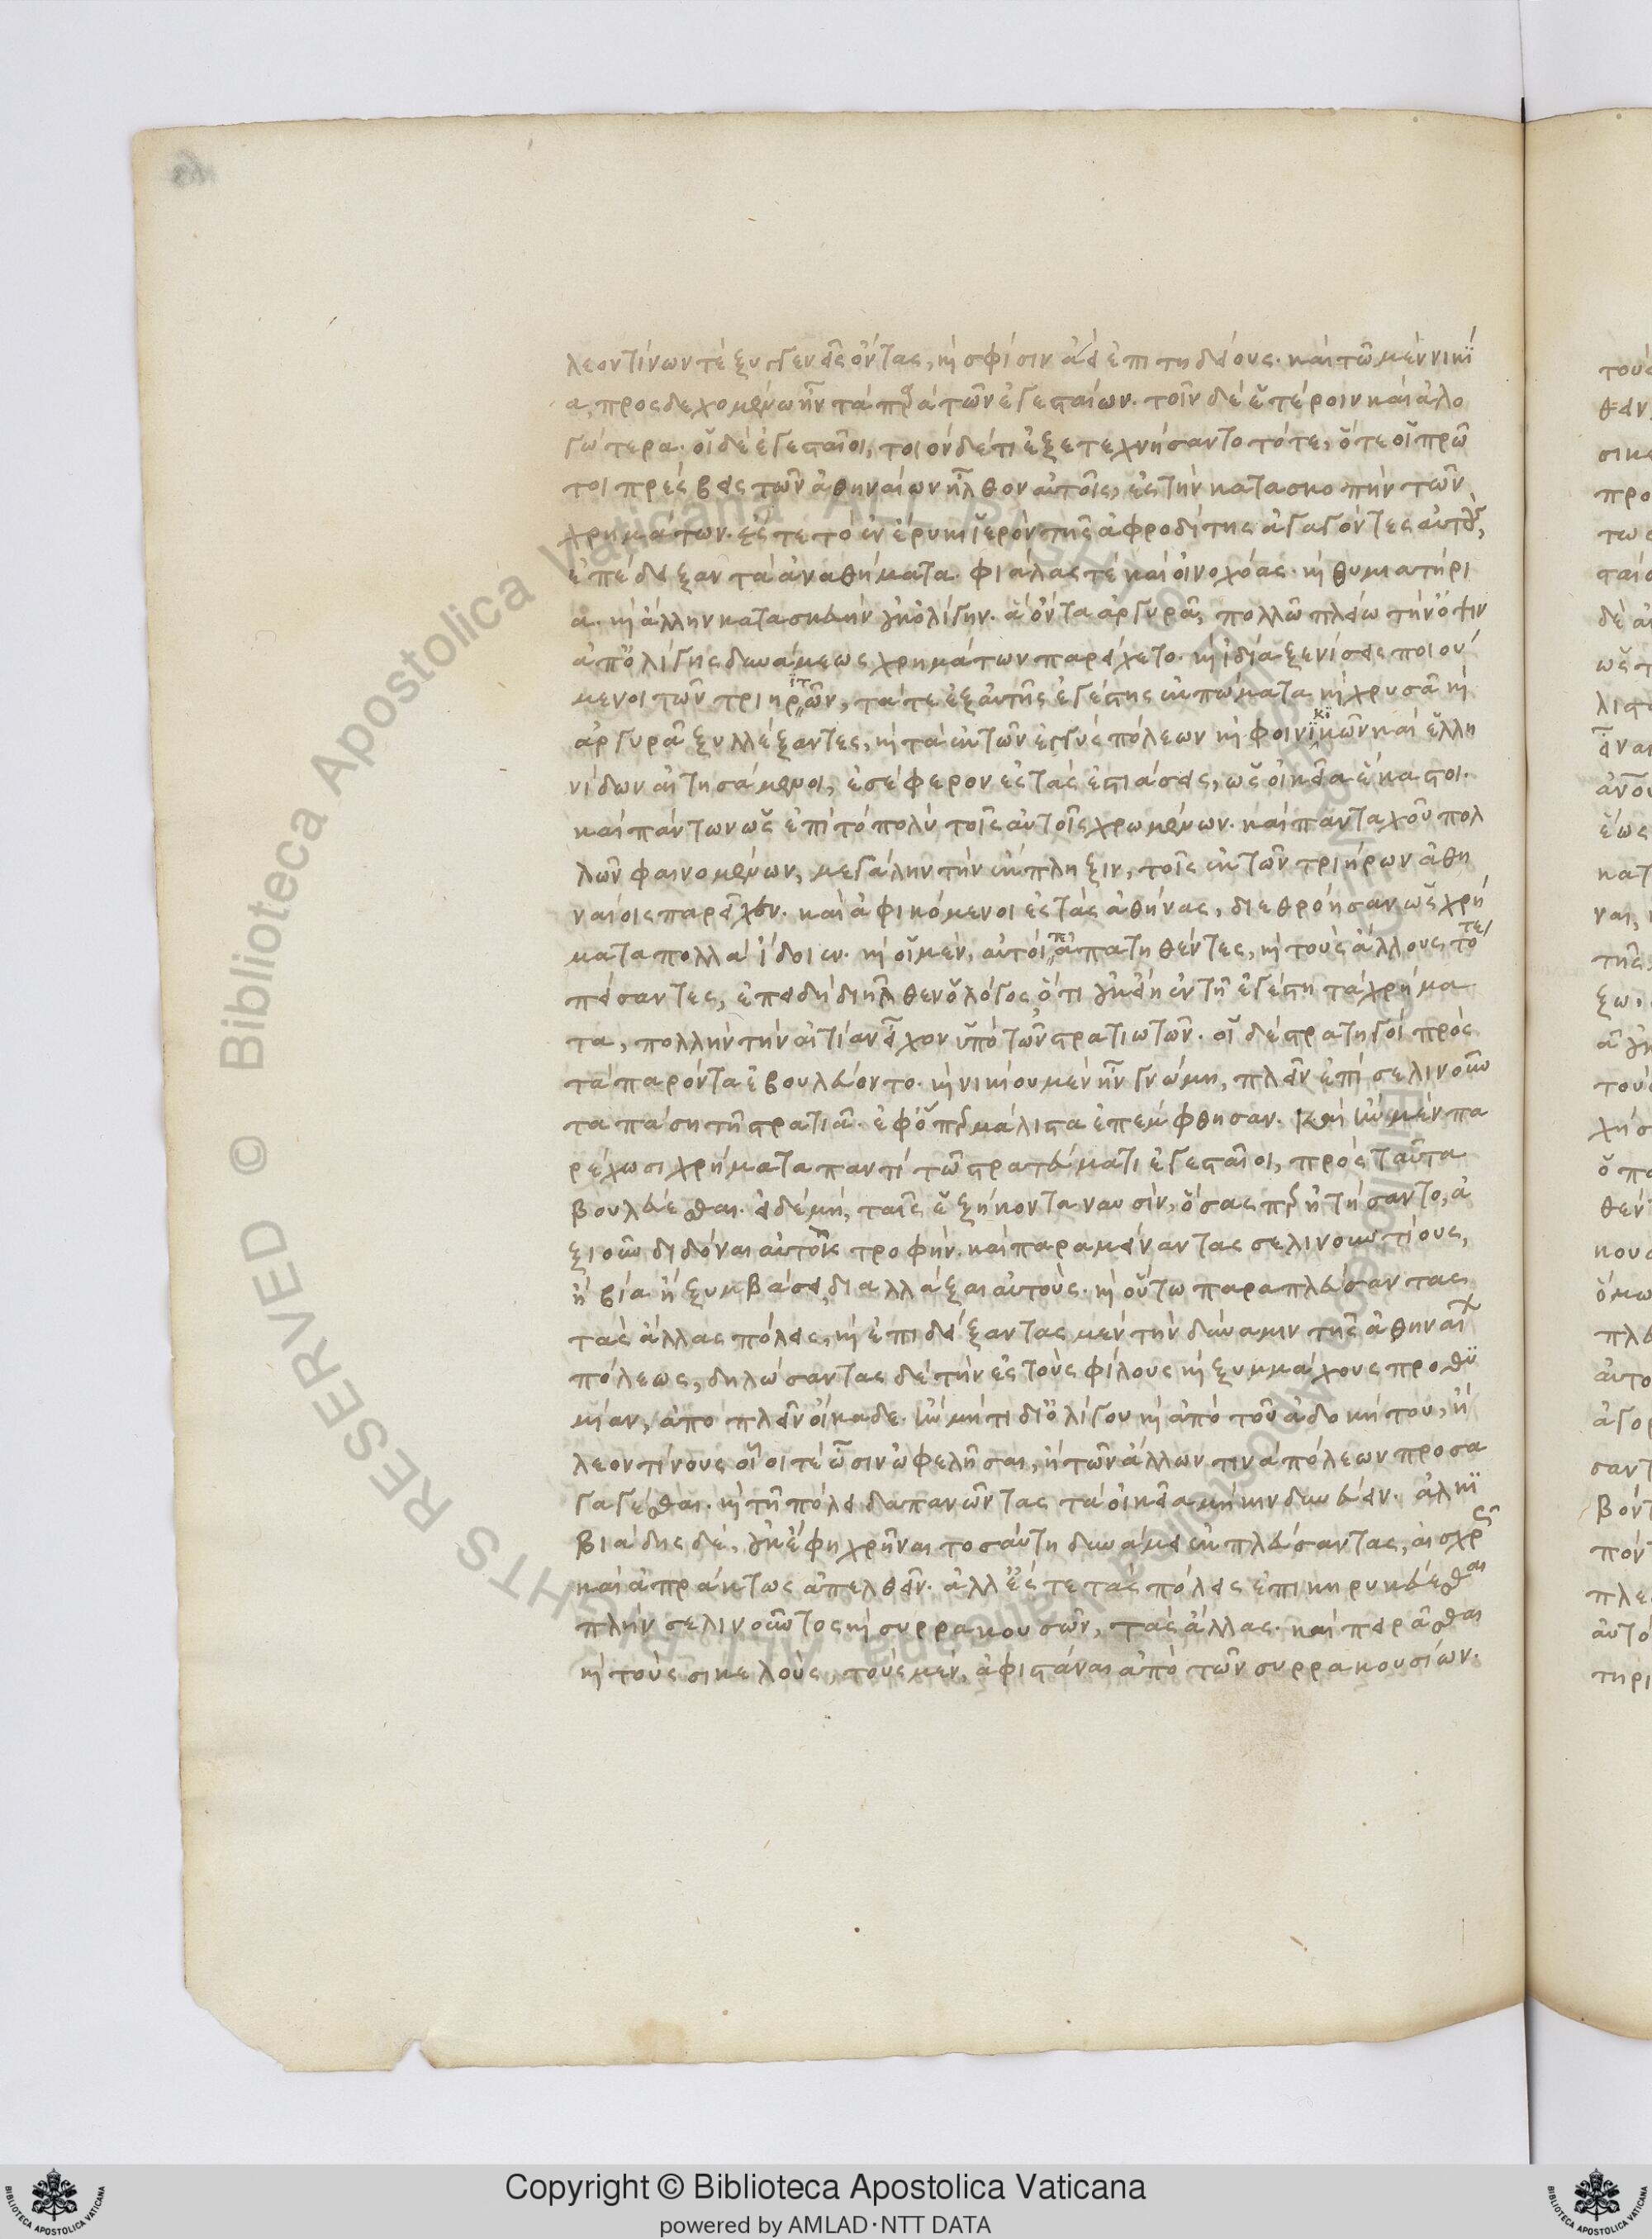 λεοντίνων τὲ ξυγγενεῖς ὄντας, καὶ σφίσιν ἀεὶ ἐπιτηδείους. καὶ τῶ μὲν νικί
α, προσδεχομένω ἦν τὰ παρὰ τῶν ἐγεσταίων. τοῖν δὲ ἑτέροιν καὶ ἀλο
γώτερα. οἱ δὲ ἐγεσταῖοι, τοιόνδε τι ἐξετεχνήσαντο τότε, ὅτε οἱ πρῶ
τοι πρέσβεις τῶν ἀθηναίων ἦλθον αὐτοῖς, ἐς τὴν κατασκοπὴν τῶν
χρημάτων. ἔς τε τὸ ἐν ἔρυκι ἱερὸν τῆς ἀφροδίτης ἀγαγόντες αὐτοὺς,
ἐπέδειξαν τὰ ἀναθήματα. φιάλας τὲ καὶ οἰνοχόας. καὶ θυμιατήρι
α. καὶ ἄλλην κατασκευὴν οὐκ ὀλίγην. ἃ ὄντα ἀργυρᾶ, πολλῶ πλείω τὴν ὄψιν
ἀπ' ὀλίγης δυνάμεως χρημάτων παρείχετο. καὶ ἰδία ξενίσεις ποιού
μενοι τῶν τριηριτῶν, τά τε ἐξ αὐτῆς ἐγέστης ἐκπώματα καὶ χρυσᾶ καὶ
ἀργυρᾶ ξυλλέξαντες, καὶ τὰ ἐκ τῶν ἐγγὺς πόλεων καὶ φοινικικῶν καὶ ἑλλη
νίδων αἰτησάμενοι, ἐσέφερον ἐς τὰς ἑστιάσεις, ὡς οἰκεῖα ἕκαστοι.
καὶ πάντων ὡς ἐπὶ τὸ πολὺ τοῖς αὐτοῖς χρωμένων. καὶ πανταχοῦ πολ
λῶν φαινομένων, μεγάλην τὴν ἔκπληξιν, τοῖς ἐκ τῶν τριήρων ἀθη
ναίοις παρεῖχεν. καὶ ἀφικόμενοι ἐς τὰς ἀθήνας, διεθρόησαν ὡς χρή
ματα πολλὰ ἴδοιεν. καὶ οἱ μὲν, αὐτοί τε ἀπατηθέντες, καὶ τοὺς ἄλλους τότε
πείσαντες, ἐπειδὴ διῆλθεν ὁ λόγος, ὅτι οὐκ εἴη ἐν τῆ ἐγέστη τὰ χρήμα
τα, πολλὴν τὴν αἰτίαν εἶχον ὑπὸ τῶν στρατιωτῶν. οἱ δὲ στρατηγοὶ πρὸς
τὰ παρόντα ἐβουλεύοντο. καὶ νικίου μὲν ἦν γνώμη, πλεῖν ἐπὶ σελινοῦν
τα πάση τῆ στρατιᾶ. ἐφ' ὅπερ μάλιστα ἐπέμφθησαν. καὶ ἢν μὲν πα
ρέχωσι χρήματα παντὶ τῶ στρατεύματι ἐγεσταῖοι, πρὸς ταῦτα
βουλεύεσθαι. εἰ δὲ μή, ταῖς ἑξήκοντα ναυσίν, ὅσας περ ἠτήσαντο, ἀ
ξιοῦν διδόναι αὐτοῖς τροφήν. καὶ παραμείναντας σελινουντίους,
ἢ βία ἢ ξυμβάσει, διαλλάξαι αὐτοῖς. καὶ οὕτω παραπλεύσαντας
τὰς ἄλλας πόλεις, καὶ ἐπιδείξαντας μὲν τὴν δύναμιν τῆς ἀθηναίων
πόλεως, δηλώσαντας δὲ τὴν ἐς τοὺς φίλους καὶ ξυμμάχους προθυ
μίαν, ἀποπλεῖν οἴκαδε. ἢν μή τι δι' ὀλίγου καὶ ἀπὸ τοῦ ἀδοκήτου, ἢ
λεοντίνους οἷοί τε ὦσιν ὠφελῆσαι, ἢ τῶν ἄλλων τινὰ πόλεων προσα
γαγέσθαι. καὶ τῆ πόλει δαπανῶντας τὰ οἰκεῖα μὴ κινδυνεύειν. ἀλκι
βιάδης δὲ, οὐκ ἔφη χρῆναι τοσαύτη δυνάμει ἐκπλεύσαντας, αἰσχρῶς
καὶ ἀπράκτως ἀπελθεῖν. ἀλλ' ἔς τε τὰς πόλεις ἐπικηρυκεύεσθαι
πλὴν σελινοῦντος καὶ συρρακουσῶν, τὰς ἄλλας. καὶ πειρᾶσθαι
καὶ τοὺς σικελοὺς, τοὺς μὲν, ἀφιστάναι ἀπὸ τῶν συρρακουσίων.
Copyright © Biblioteca Apostolica Vaticana
powered by AMLAD·NTT DATA